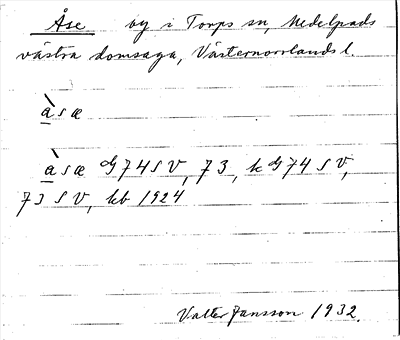 Åse by i Torps sn, Medelpads
västra domsaga, Västernorrlands l.
à̱sæ
à̱sæ G74SV, 73, k G74SV,
73SV, kb 1924
Valter Jansson 1932.